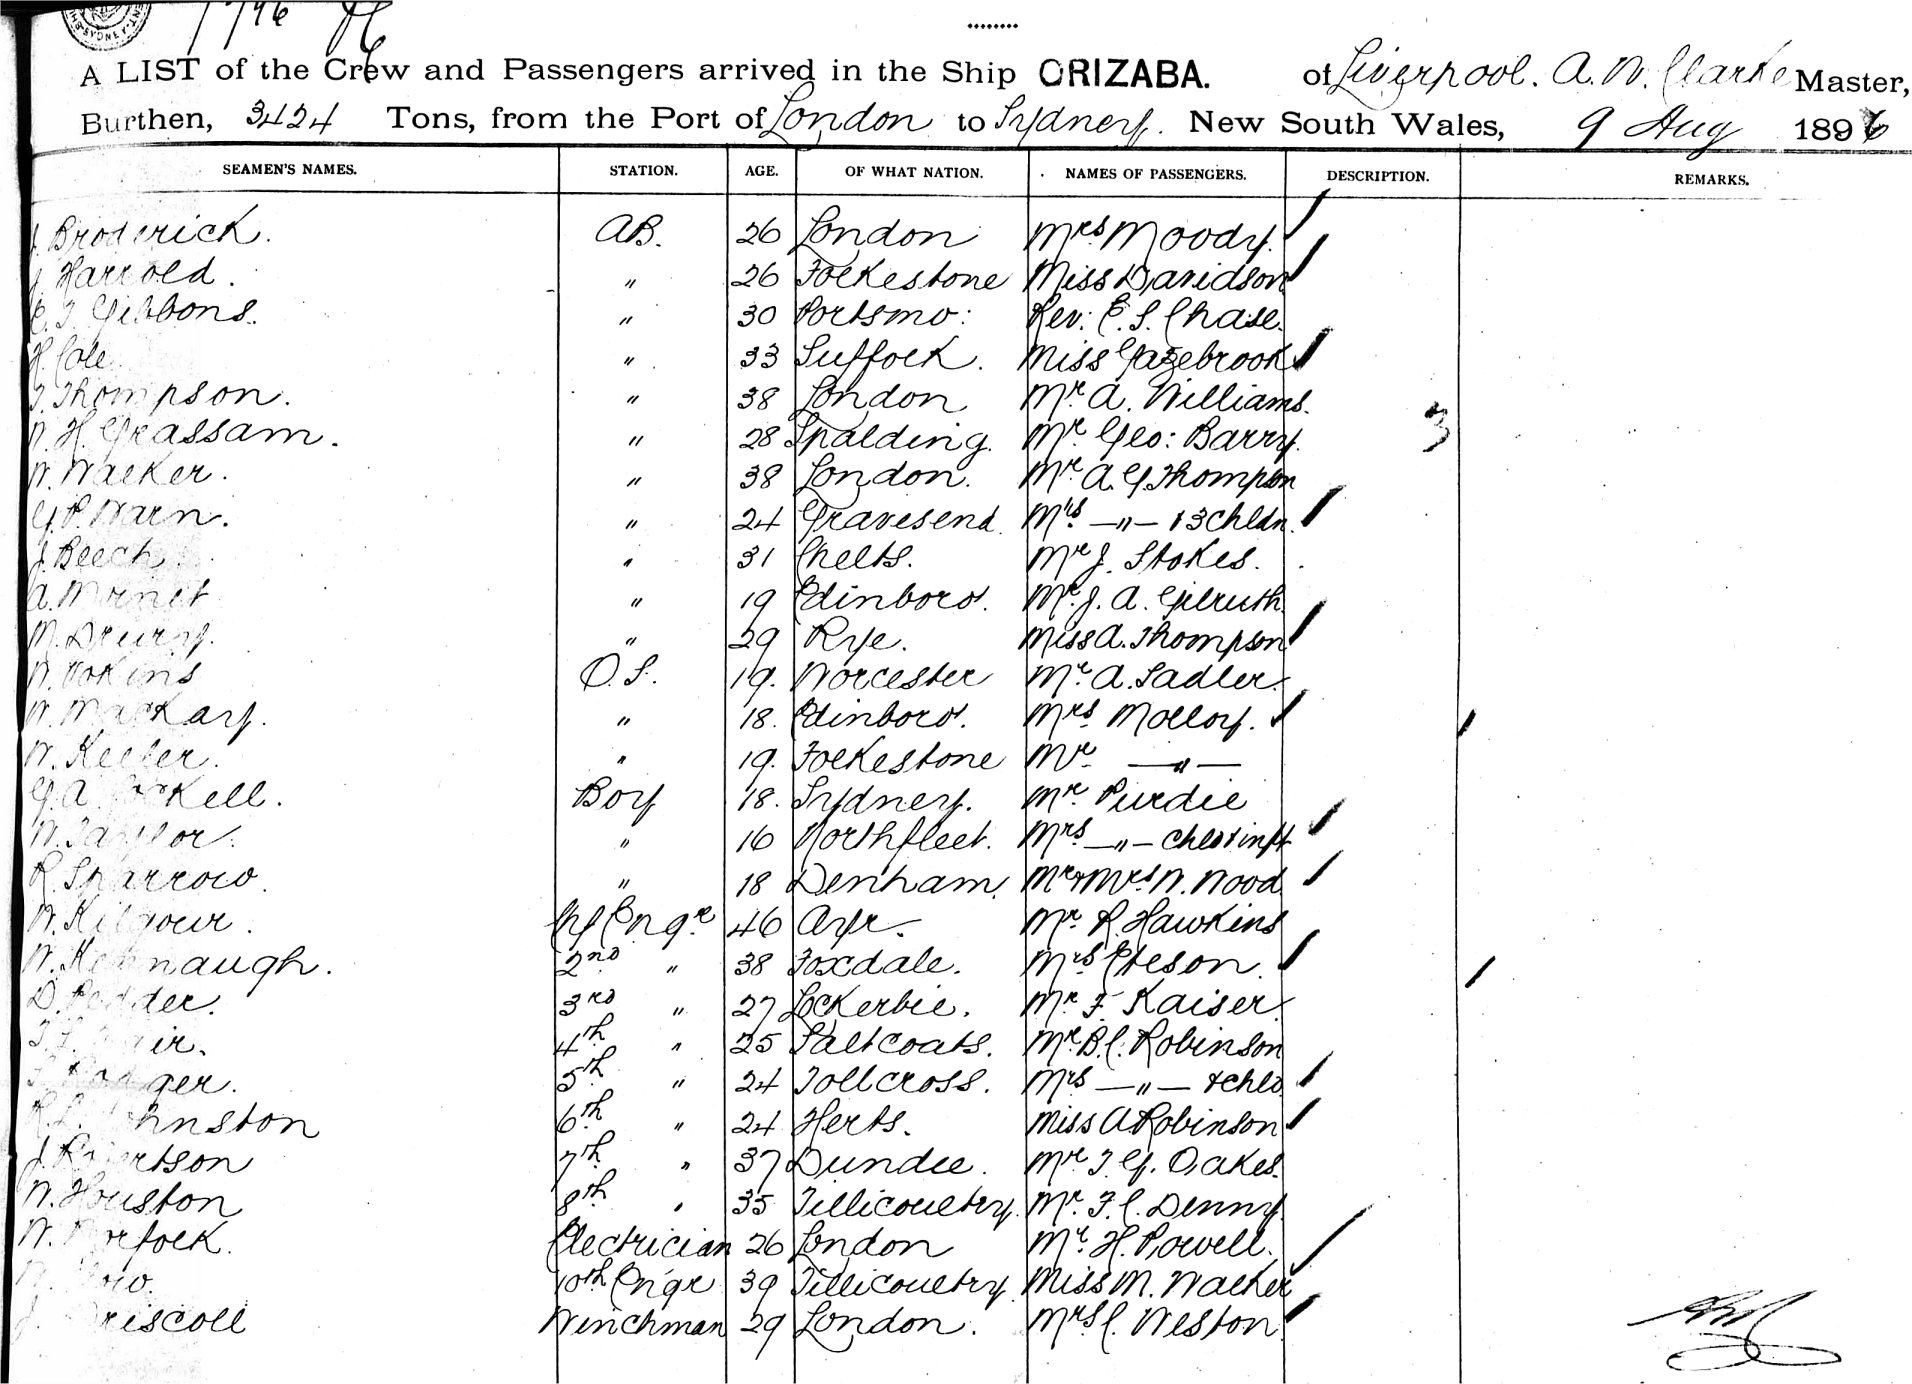 1796
SYDNEY
A LIST of the Crew and Passengers arrived in the Ship ORIZABA. of Liverpool. A. W. Clarke Master,
Burthen, 3424 Tons, from the Port of London to Sydney. New South Wales, 9 Aug 1896
SEAMEN'S NAMES. STATION. AGE. OF WHAT NATION. NAMES OF PASSENGERS. DESCRIPTION. REMARKS.
J. Broderick. AB. 26 London Mrs Moody.
J. Harrold. " 26 Folkestone Miss Davidson
E. J. Gibbons. " 30 Portsmo: Rev: E. S. Chase.
H. Cole " 33 Suffolk. Miss Gazebrook
T. Thompson. " 38 London Mr. A. Williams.
W. H. Grassam. " 28 Spalding. Mr. Geo: Barry. 3
W. Walker. " 38 London. Mr. A. G. Thompson
G. P. Warn. " 24 Gravesend. Mrs. —"— & 3 chldn.
J. Beech " 31 Chelts. Mr J. Stokes.
A. " 19 Edinboro'. Mr. J. A. Gilruth
M. Drury. " 29 Rye. Miss A. Thompson
W. O. S. 19. Worcester Mr. A. Sadler.
W. Mackay. " 18. Edinboro'. Mrs Molloy.
W. Keeler. " 19. Folkestone Mr. —"—
G. A. Boy 18. Sydney. Mr. Purdie
W. Taylor. " 16 Northfleet. Mrs —"— chld & inft
R. Sparrow. " 18 Denham. Mr & Mrs W. Wood
W. Kilgour. Chf Engr 46 Ayr. Mr. R. Hawkins
W. 2nd " 38 Foxdale. Mrs Eteson.
D. Pedder. 3rd " 27 Lockerbie. Mr F. Kaiser.
4th " 25 Saltcoats. Mr. B. C. Robinson
5th " 24 Tollcross. Mrs —"— & chld
R. L. Johnston 6th " 24 Herts. Miss A Robinson
J. Robertson 7th " 37 Dundee. Mr. T. G. Oakes.
W. Houston 8th " 35 Tillicoultry. Mr. F. C. Denny
W. Norfolk. Electrician 26 London Mr. H. Powell.
10th Engr 39 Tillicoultry Miss M. Walker
J. Driscoll Winchman 29 London. Mrs C. Weston